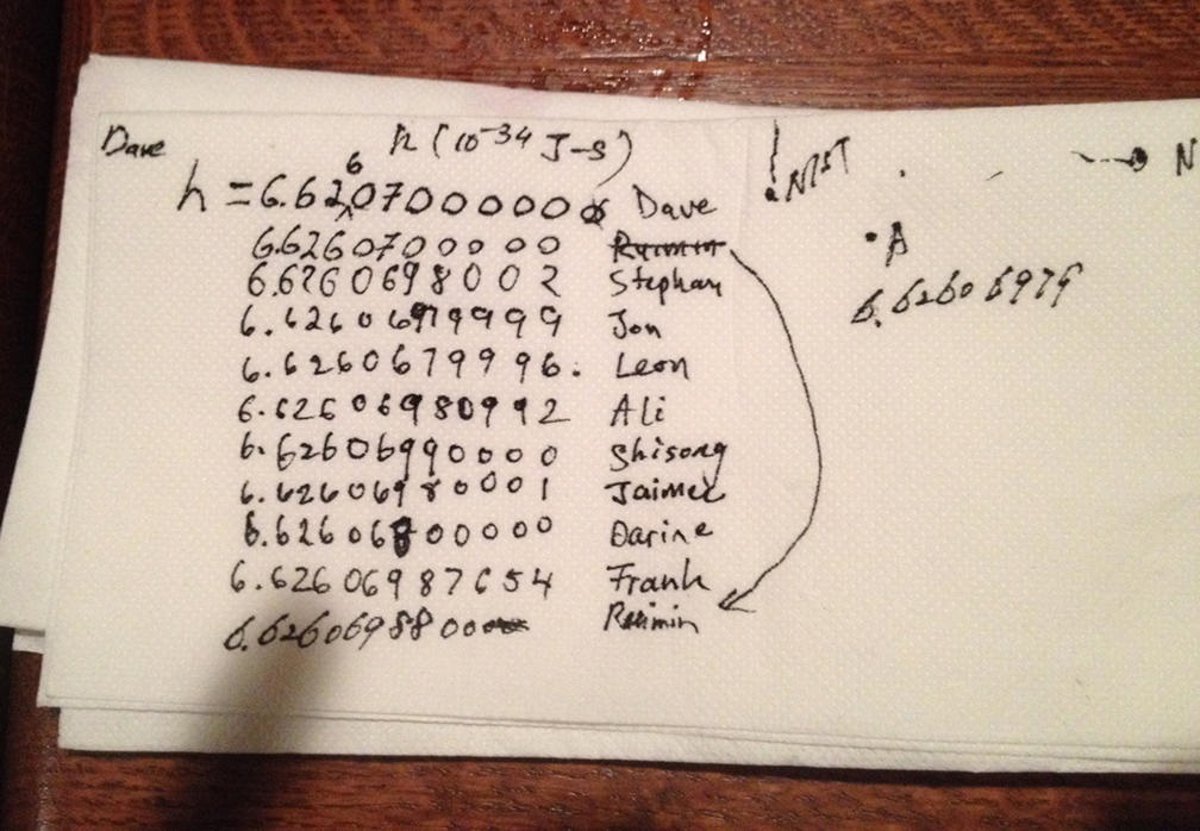 Dave h (10⁻³⁴ J-s)
6
h = 6.62070000000 Dave
6.6260700000 Ruimin
6.6260698002 Stephan
6.62606979999 Jon
6.6260679996. Leon
6.62606980992 Ali
6.62606990000 Shisong
6.62606980001 Jaimee
6.6260680000 Darine
6.62606987654 Frank
6.62606988000 Ruimin
NIST
N
A
6.62606979